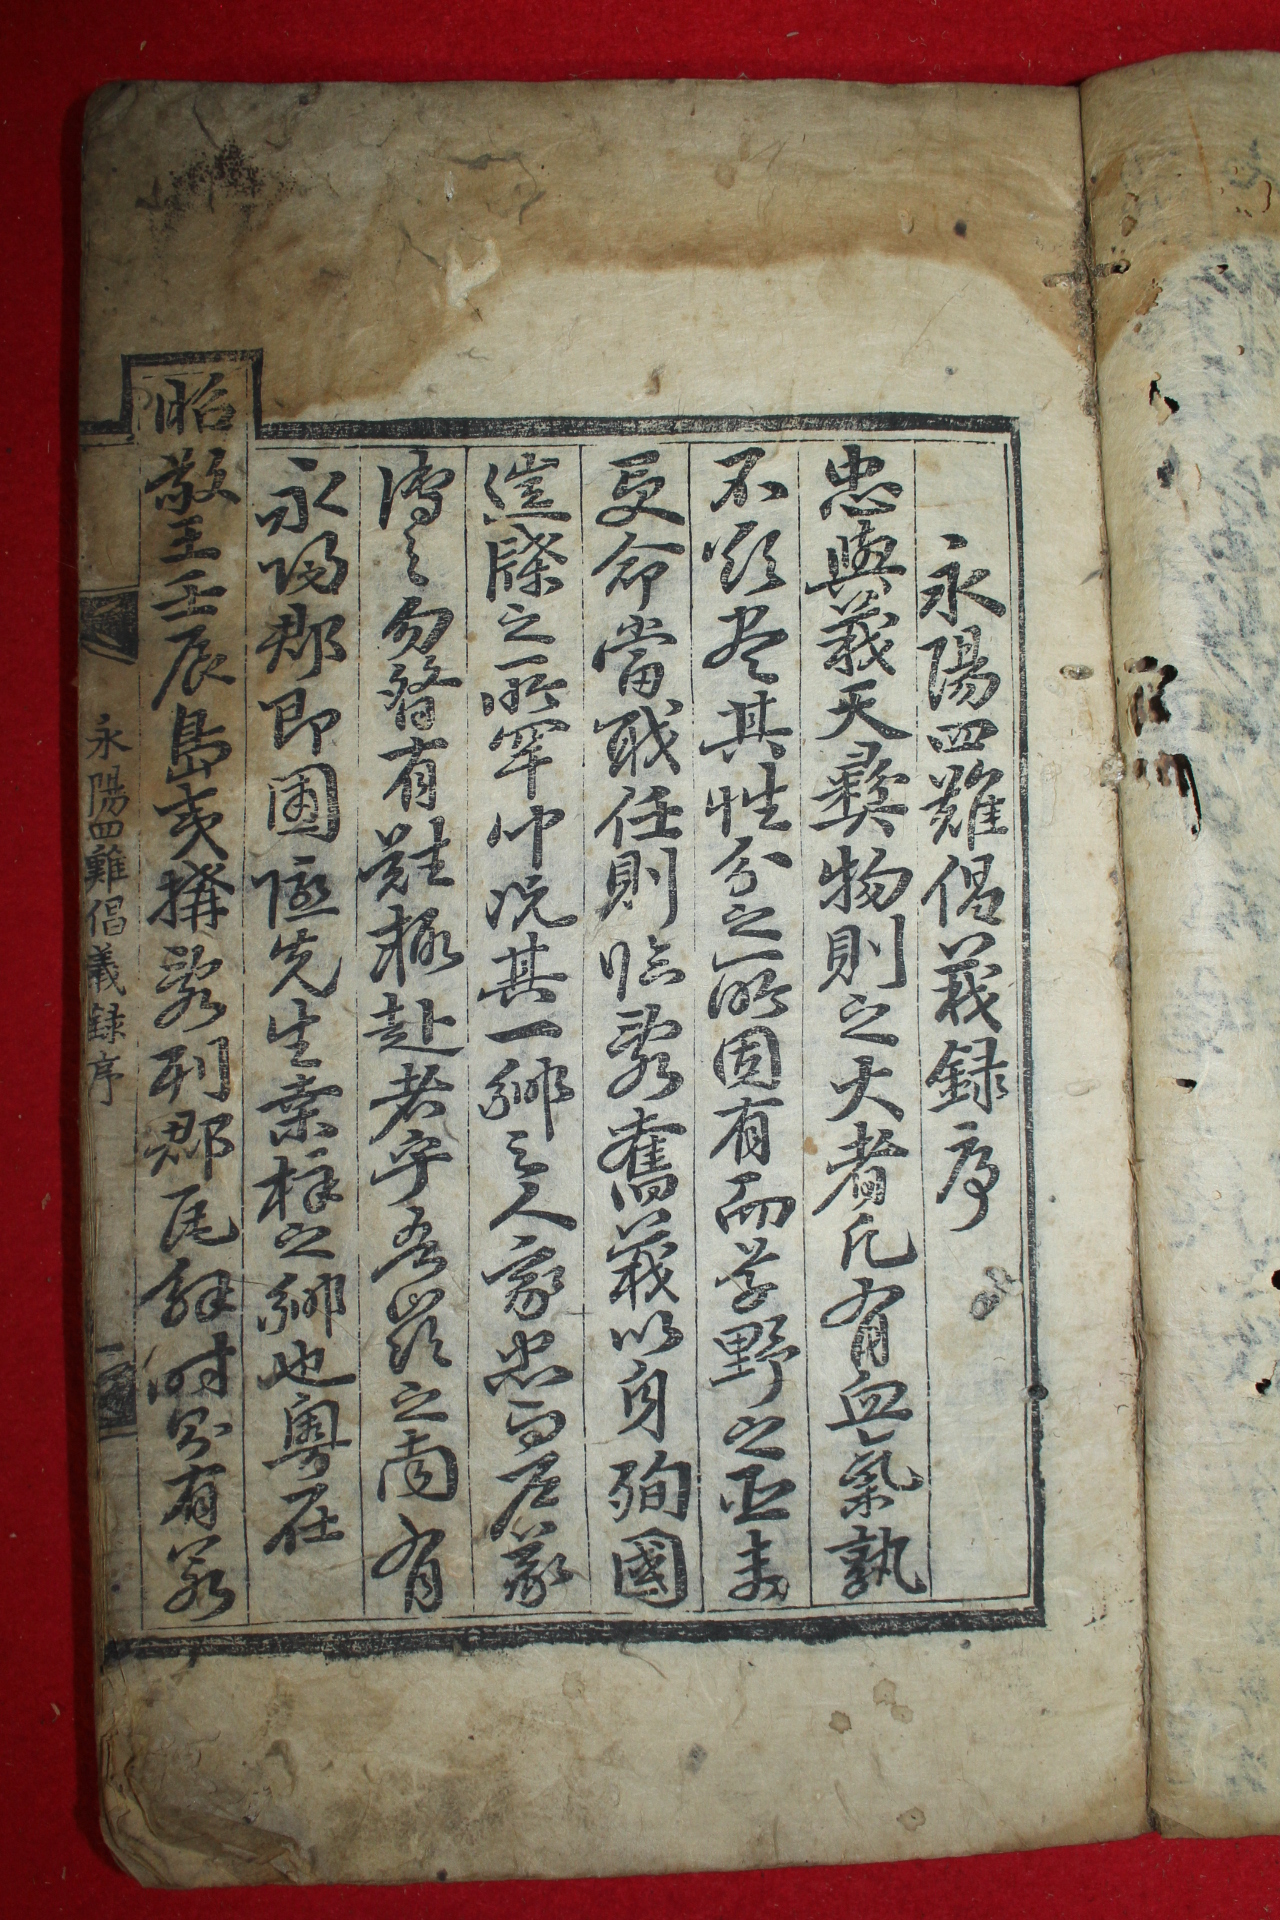 永陽四難倡義録序
忠與義天彛物則之大者凡有血氣孰
不欲盡其性分之所固有而草野之臣未
受命當戢任則臨亂奮義以身殉國
簡牒之所罕卄况其一鄉之人家忠而戶義
傳之勿替有難極赴者乎吾嶺之南有
永陽郡即圃隱先生桑梓之鄉也粤在
昭敬王壬辰島夷搆亂列郡瓦解時則有若
永陽四難倡義録序
一